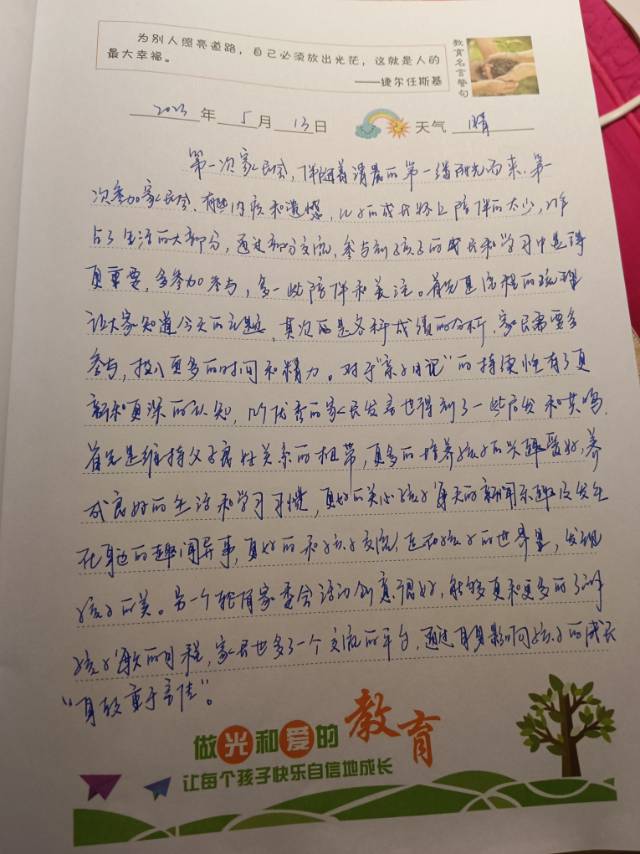 为别人照亮道路，自己必须放出光茫，这就是人的
最大幸福。
——捷尔任斯基
教育名言警句
2023年 5月 13日 天气 晴
第一次家长会，伴随着清晨的第一缕阳光而来，第一
次参加家长会，有些内疚和遗憾，儿子的成长路上陪伴的太少，
占了生活的大部分，通过部分交流，参与到孩子的成长和学习中显得
更重要，多参加参与，多一些陪伴和关注。首先是流程的梳理
让大家知道今天的主题，其次的是各科成绩的分析，家长需要多
参与，投入更多的时间和精力。对于“亲子日记”的持续性有了更
新和更深的认知，听优秀的家长发言也得到了一些启发和共鸣，
首先是维持父子良性关系的纽带，更多的培养孩子的兴趣爱好，养
成良好的生活和学习习惯，更好的关心孩子每天的新闻乐趣及发生
在身边的趣闻异事，更好的和孩子交流，走和孩子的世界里，发现
孩子的美。另一个低年级家委会活动创意很好，能够更和更多的了解
孩子每天的日程，家长也多了一个交流的平台，通过自身影响孩子的成长
“身教重于言传”。
做光和爱的教育
让每个孩子快乐自信地成长